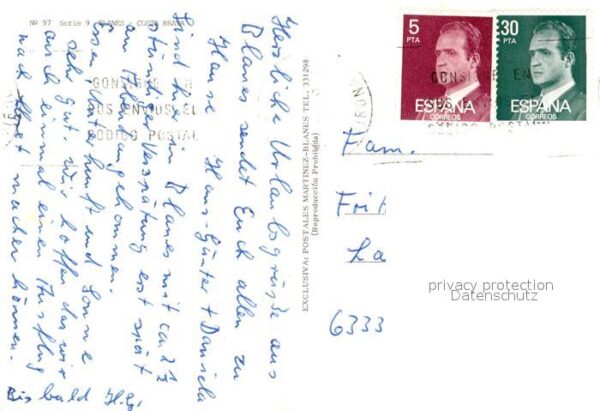 NR 97 Serie 9 BLANES - COSTA BRAVA
Herzliche Urlaubsgrüsse aus
Blanes sendet Euch allen zu
Hause Hans-Günter + Daniela
Sind hier in Blanes mit ca 2½
stündiger Verspätung erst spät
am Abend angekommen.
Essen Unterkunft und Sonne
sehr gut. Wir hoffen das wir
auch einmal einen Ausflug
nach machen können.
Bis bald H.G.
CONSIGNE EN
SUS ENVIOS EL
CODIGO POSTAL
EXCLUSIVA: POSTALES MARTINEZ-BLANES TEL. 331298
(Reproducción Prohibida)
5
PTA
ESPAÑA
CORREOS
30
PTA
ESPAÑA
CORREOS
CONSIGNE EN
Fam.
Frit
La
privacy protection
Datenschutz
6333